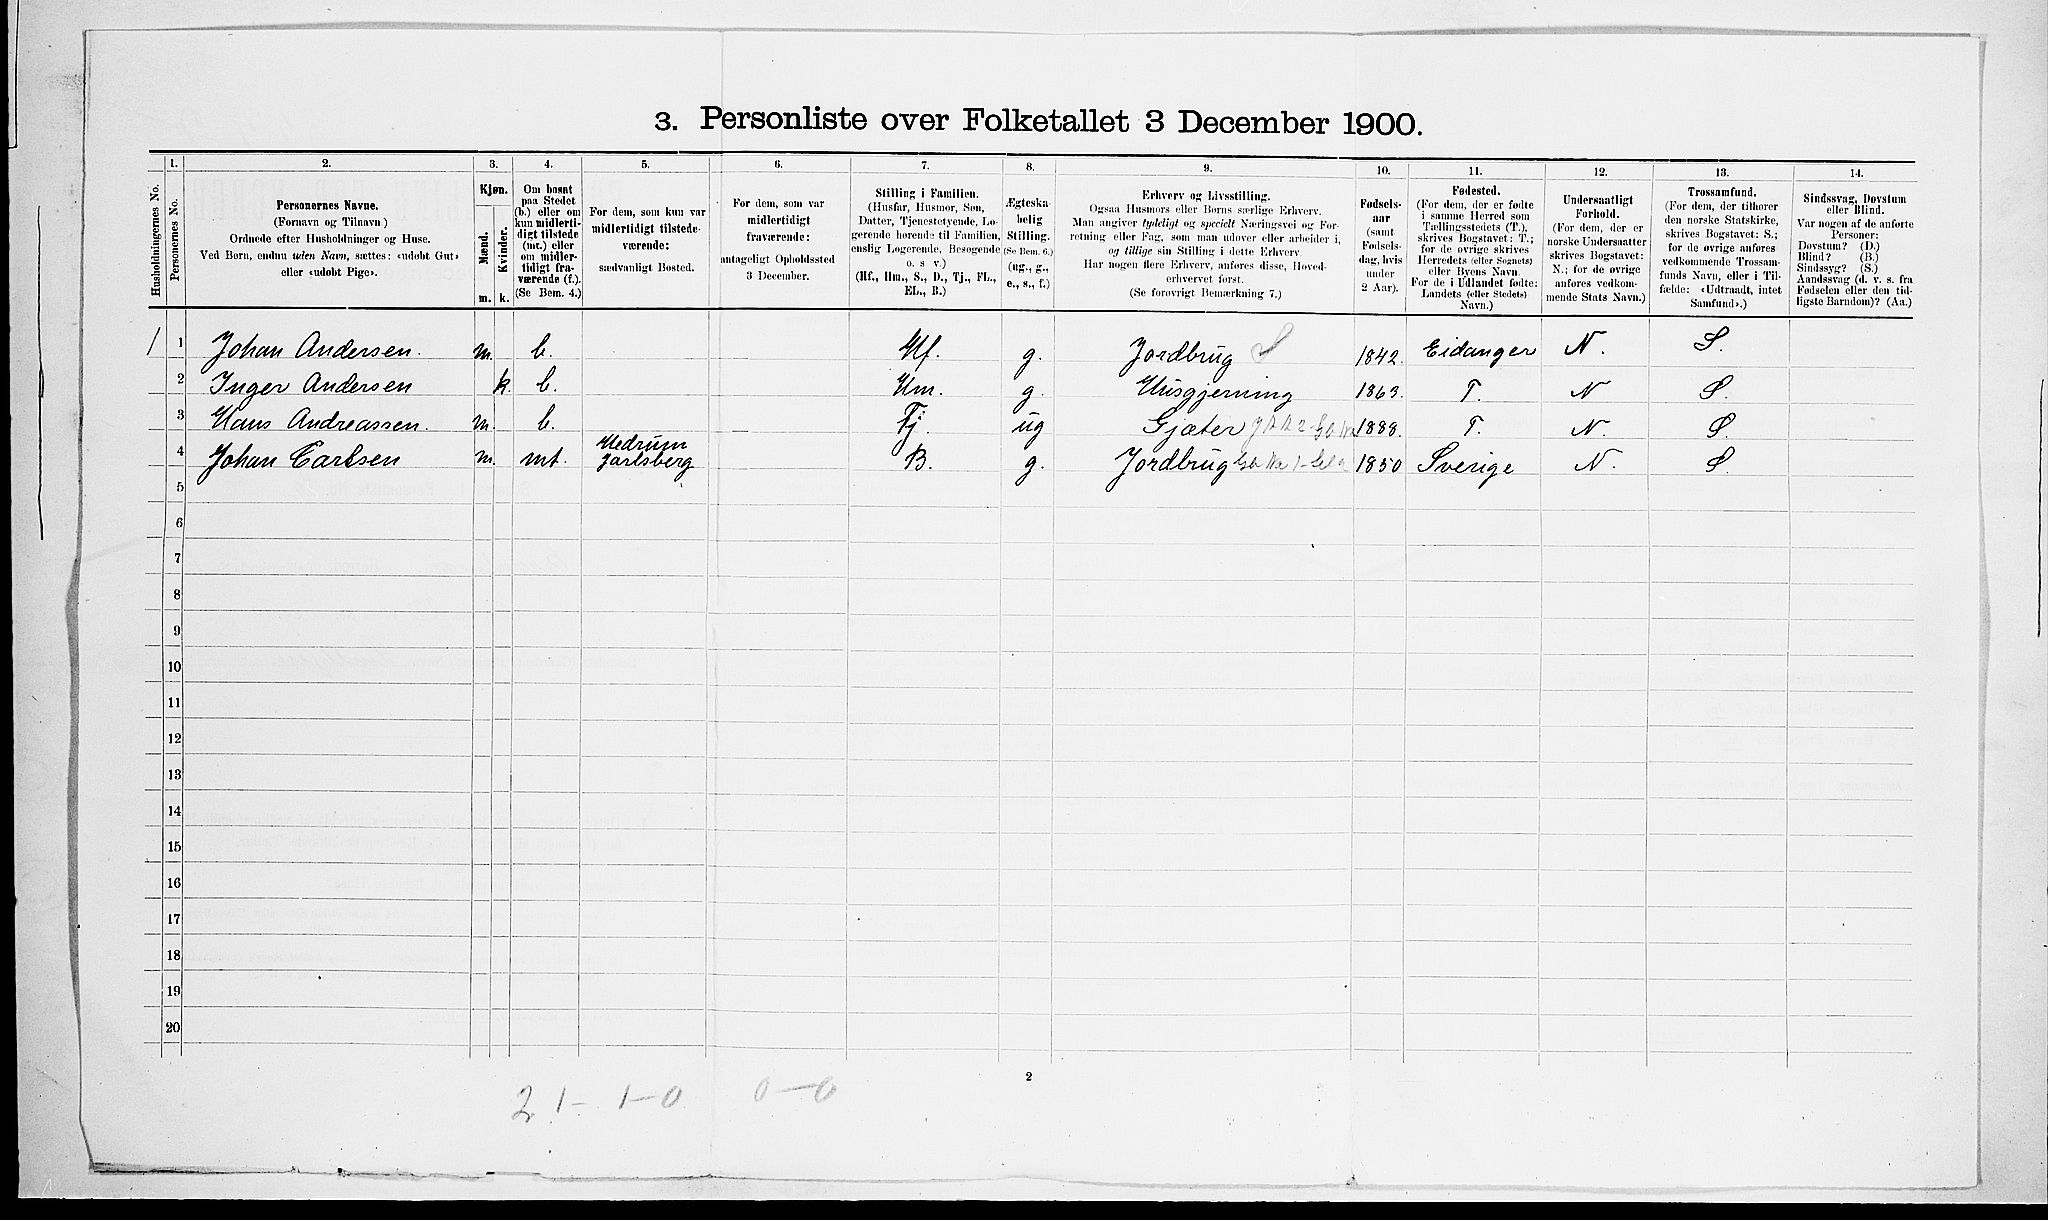 3. Personliste over Folketallet 3 December 1900.
1. 2. 3. 4. 5. 6. 7. 8. 9. 10. 11. 12. 13. 14.
Husholdningernes No.
Personernes No.
Personernes Navne.
(Fornavn og Tilnavn)
Ordnede efter Husholdninger og Huse.
Ved Børn, endnu uden Navn, sættes: «udøbt Gut»
eller «udøbt Pige».
Kjøn.
Mænd.
Kvinder.
m. k.
Om bosat
paa Stedet
(b.) eller om
kun midlerti-
digt tilstede
(mt.) eller
om midler-
tidigt fra-
værende (f.).
(Se Bem. 4.)
For dem, som kun var
midlertidigt tilstede-
værende:
sædvanligt Bosted.
For dem, som var
midlertidigt
fraværende:
antageligt Opholdssted
3 December.
Stilling i Familien.
(Husfar, Husmor, Søn,
Datter, Tjenestetyende, Lo-
gerende hørende til Familien,
enslig Logerende, Besøgende
o. s. v.)
(Hf., Hm., S., D., Tj., FL.,
EL., B.)
Ægteska-
belig
Stilling.
(Se Bem. 6.)
(ug., g.,
e., s., f.)
Erhverv og Livsstilling.
Ogsaa Husmors eller Børns særlige Erhverv.
Man angiver tydeligt og specielt Næringsvei og For-
retning eller Fag, som man udøver eller arbeider i,
og tillige sin Stilling i dette Erhverv.
Har nogen flere Erhverv, anføres disse, Hoved-
erhvervet først.
(Se forøvrigt Bemærkning 7.)
Fødsels-
aar
(samt
Fødsels-
dag, hvis
under
2 Aar).
Fødested.
(For dem, der er fødte
i samme Herred som
Tællingsstedets (T.),
skrives Bogstavet: T.;
for de øvrige skrives
Herredets (eller Sognets)
eller Byens Navn.
For de i Udlandet fødte:
Landets (eller Stedets)
Navn.)
Undersaatligt
Forhold.
(For dem, der er
norske Undersaatter
skrives Bogstavet:
N.; for de øvrige
anføres vedkom-
mende Stats Navn.)
Trossamfund.
(For dem, der tilhører
den norske Statskirke,
skrives Bogstavet: S.;
for de øvrige anføres
vedkommende Trossam-
funds Navn, eller i Til-
fælde: «Udtraadt, intet
Samfund».)
Sindssvag, Døvstum
eller Blind.
Var nogen af de anførte
Personer:
Døvstum? (D.)
Blind? (B.)
Sindssyg? (S.)
Aandssvag (d. v. s. fra
Fødselen eller den tid-
ligste Barndom)? (Aa.)
1 1 Johan Andersen. m. b. Hf. g. Jordbrug S 1842. Eidanger N. S.
2 Inger Andersen k. b. Hm. g. Husgjerning 1863. T. N S.
3 Hans Andreassen. m. b. Tj. ug Gjæter 1888. T. N. S.
4 Johan Carlsen m. mt. Hedrum Jarlsberg B. g. Jordbrug 1850 Sverige N. S.
5
6
7
8
9
10
11
12
13
14
15
16
17
18
19
20
2
2 1- 1-0 0-0